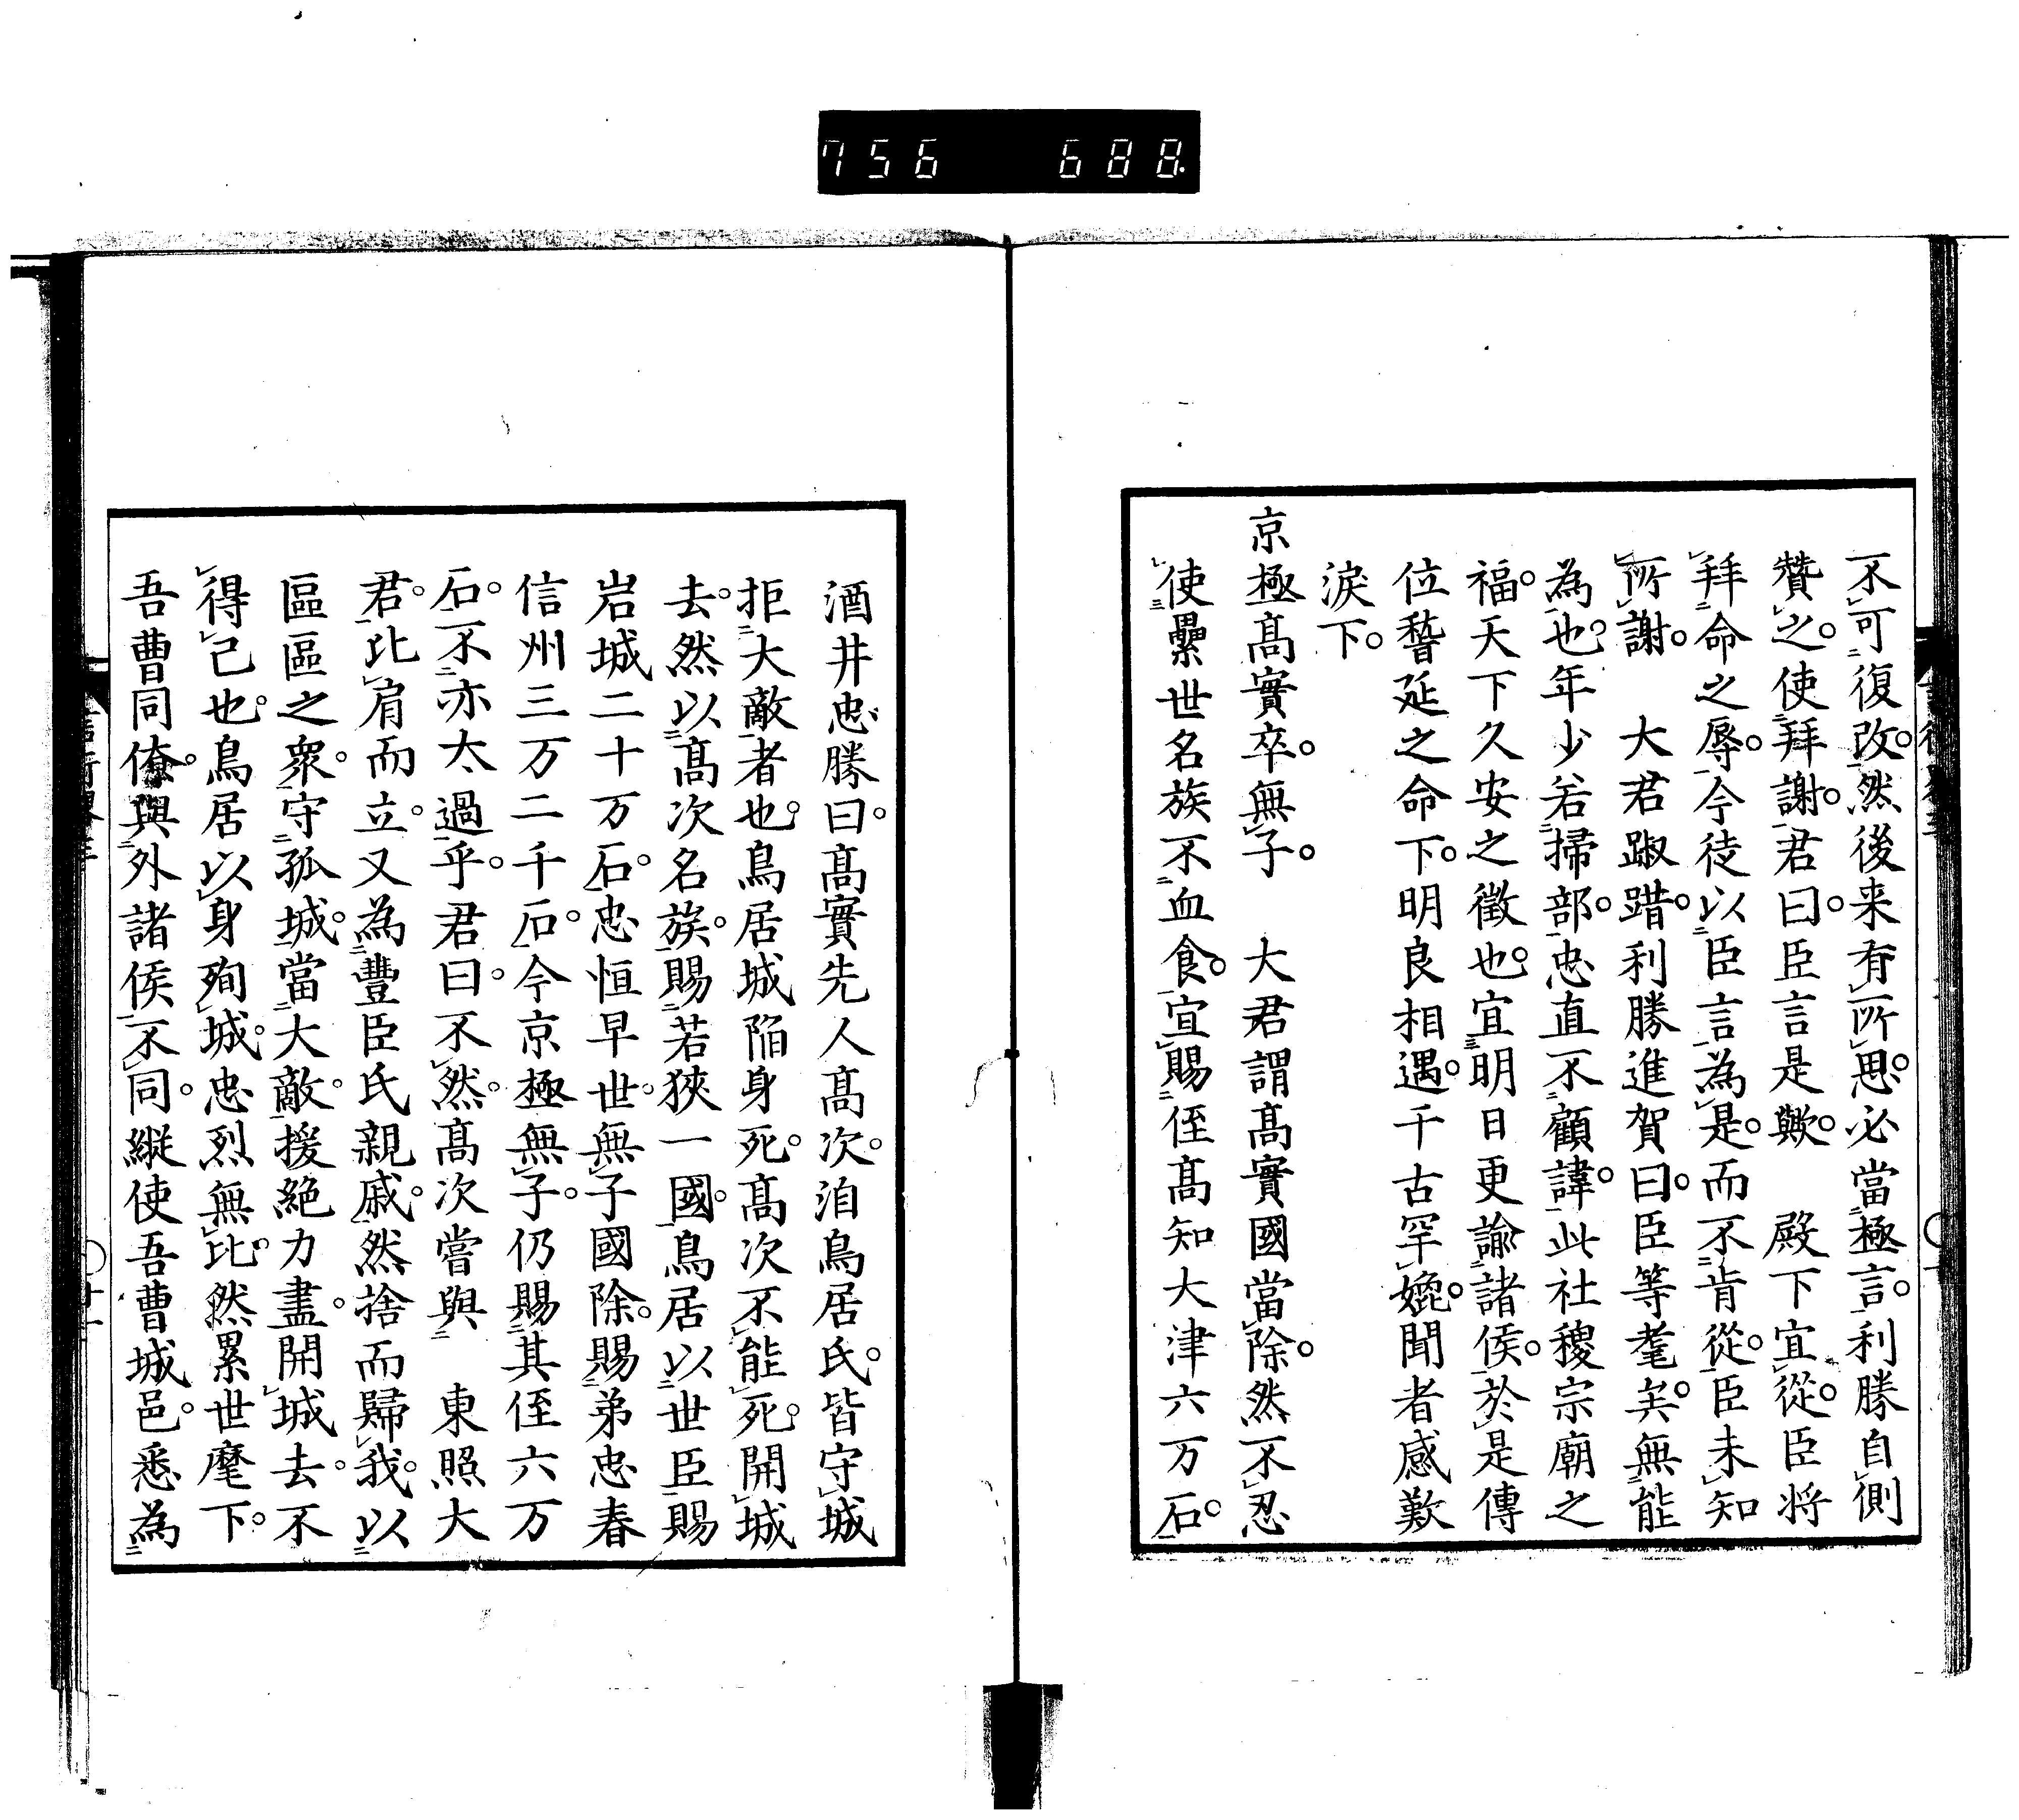 756 688
不可復改。然後来有所思。必當極言。利勝自側
贊之。使拜謝。君曰。臣言是歟。 殿下宜從。臣将
拜命之辱。今徒以臣言為是。而不肯從。臣未知
所謝。 大君踧踖。利勝進賀曰。臣等耄矣。無能
為也。年少若掃部。忠直不顧諱。此社稷宗廟之
福。天下久安之徵也。宜明日更諭諸侯。於是傳
位暫延之命下。明良相遇。千古罕媲。聞者感歎
淚下。
京極髙實卒。無子。 大君謂髙實國當除。然不忍
使纍世名族不血食。宜賜侄髙知大津六万石。
酒井忠勝曰。髙實先人髙次。洎鳥居氏。皆守城
拒大敵者也。鳥居城陥身死。髙次不能死。開城
去。然以髙次名族。賜若狹一國。鳥居以世臣賜
岩城二十万石。忠恒早世。無子國除。賜弟忠春
信州三万二千石。今京極無子。仍賜其侄六万
石。不亦太過乎。君曰。不然。髙次嘗與 東照大
君。比肩而立。又為豐臣氏親戚。然捨而歸我。以
區區之衆。守孤城。當大敵。援絶力盡。開城去。不
得已也。鳥居以身殉城。忠烈無比。然累世麾下。
吾曹同僚。與外諸侯不同。縱使吾曹城邑。悉為